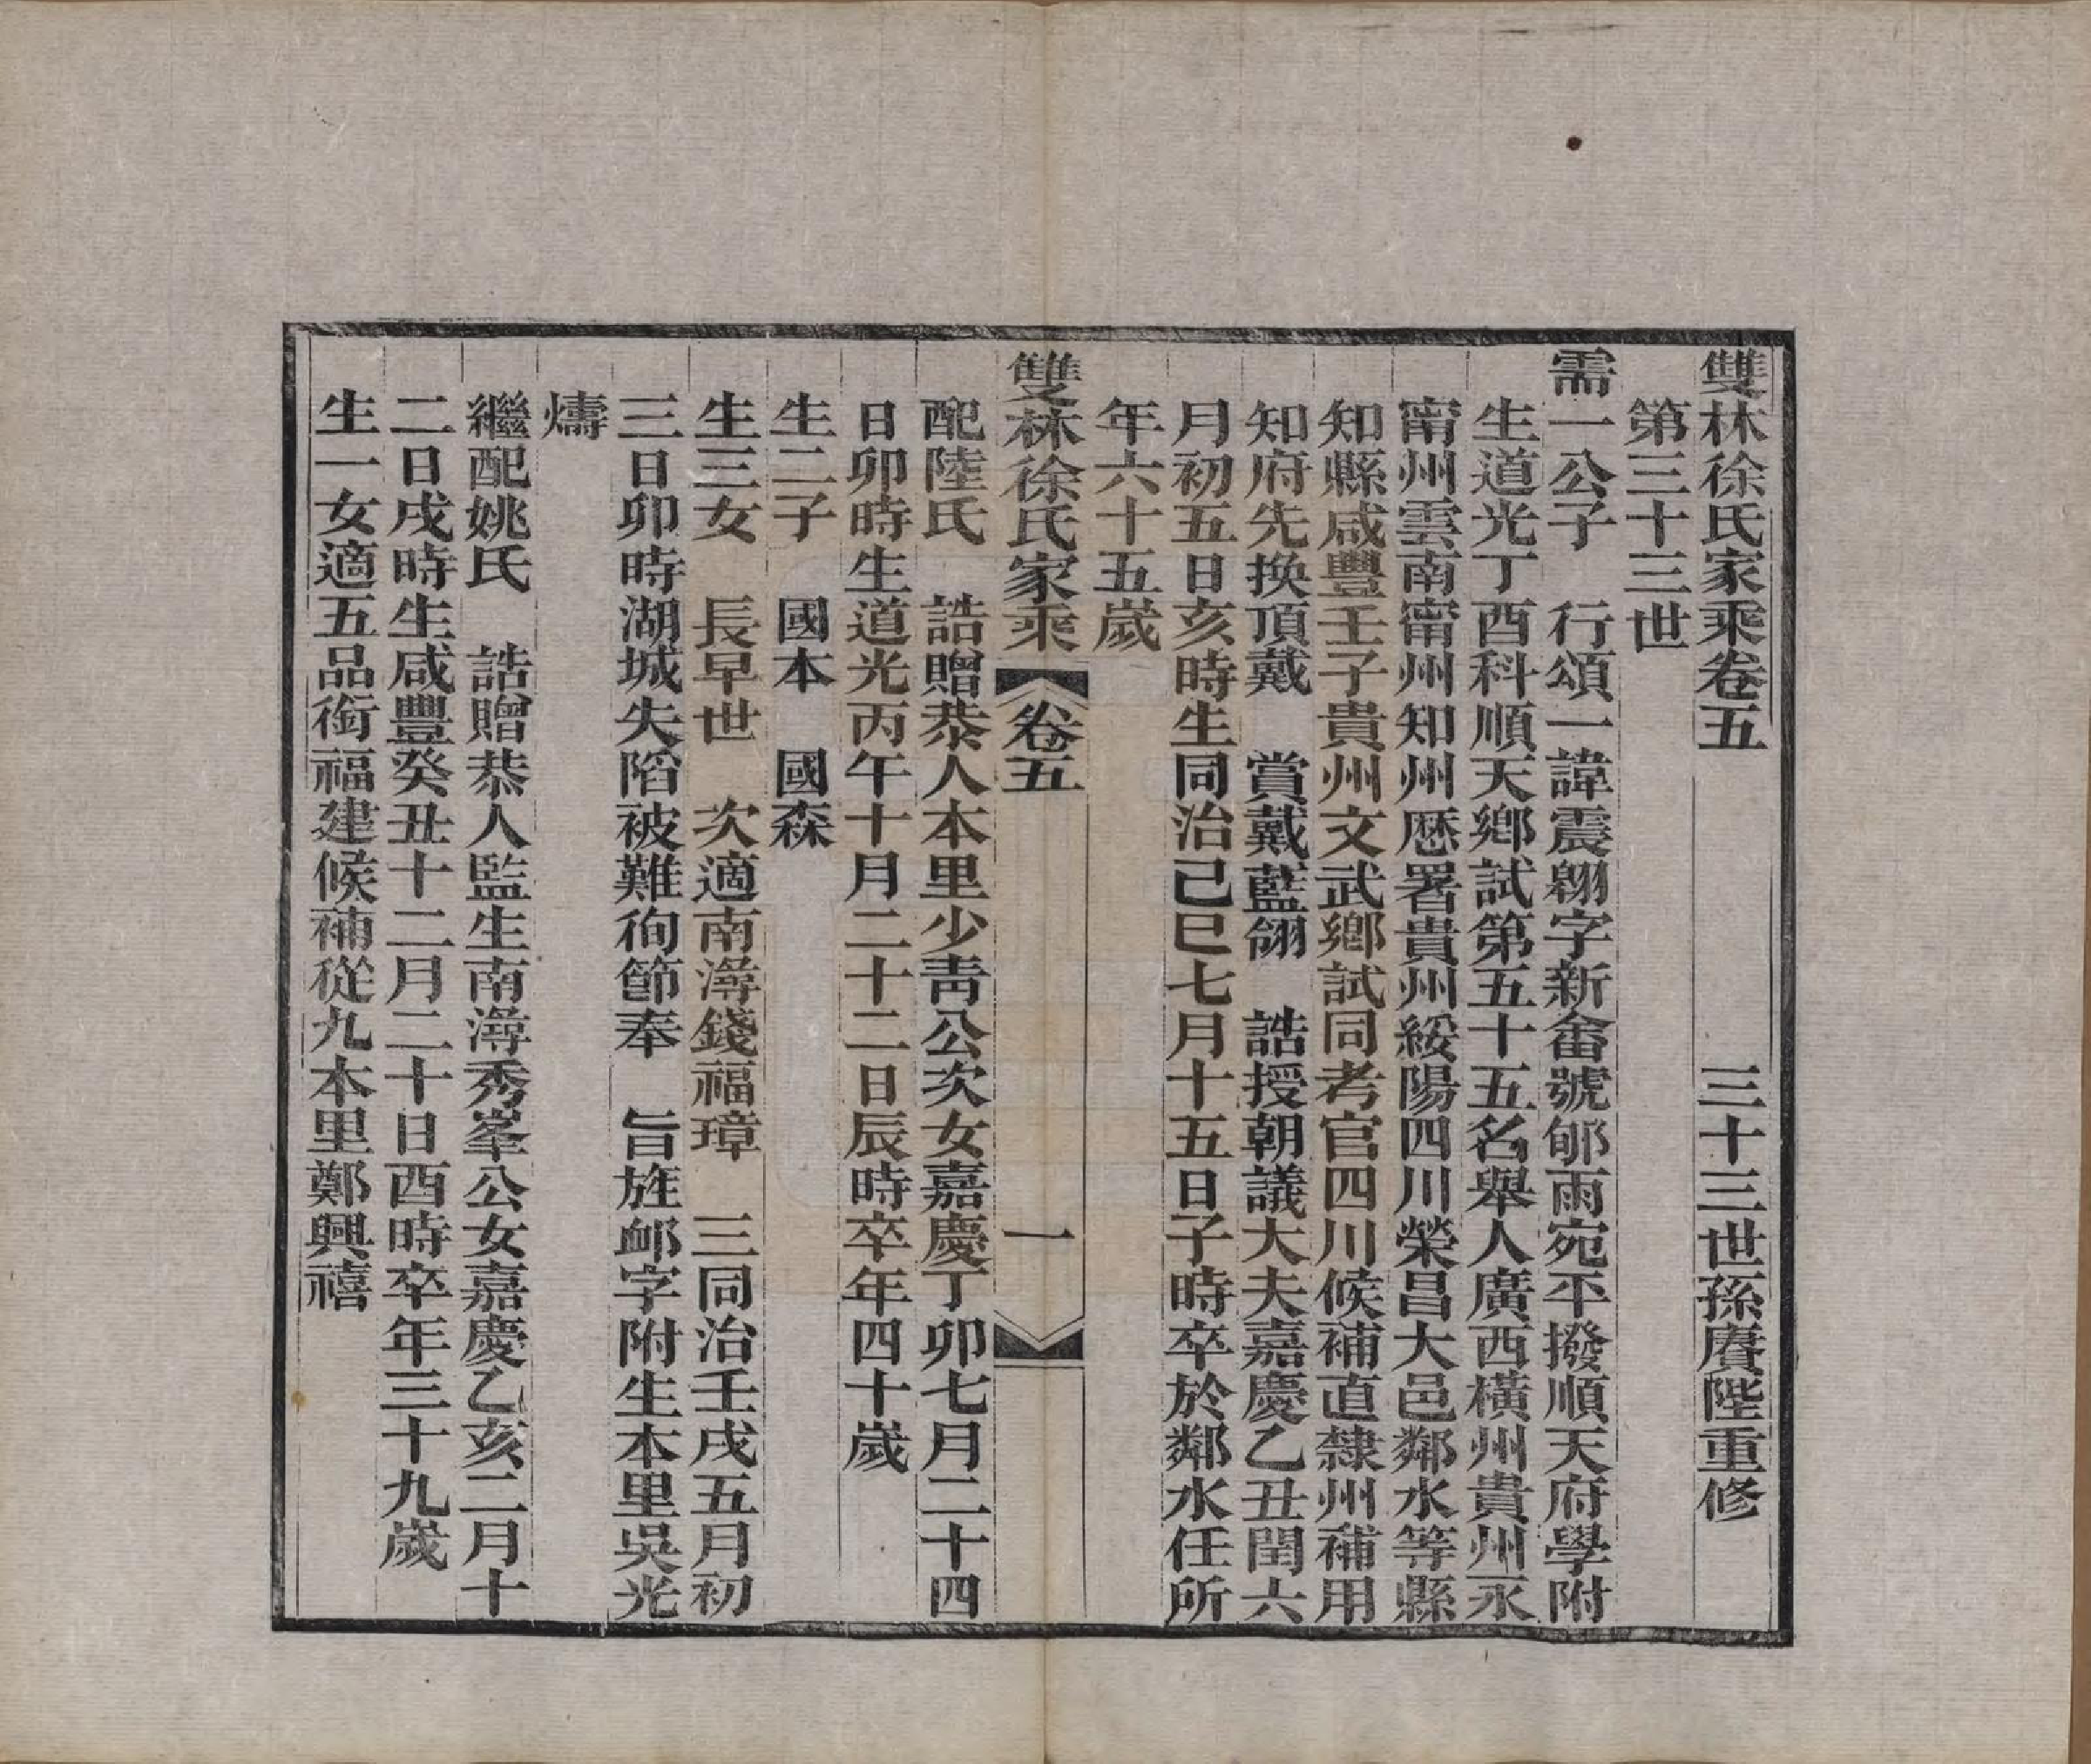 雙林徐氏家乘卷五　三十三世孫賡陛重修
第三十三世
需一公子　行頌一諱震翱字新畬號郇雨宛平撥順天府學附
生道光丁酉科順天鄉試第五十五名舉人廣西橫州貴州永
甯州雲南甯州知州歷署貴州綏陽四川榮昌大邑鄰水等縣
知縣咸豐壬子貴州文武鄉試同考官四川候補直隸州補用
知府先換頂戴　賞戴藍翎　誥授朝議大夫嘉慶乙丑閏六
月初五日亥時生同治己巳七月十五日子時卒於鄰水任所
年六十五歲
雙林徐氏家乘　卷五　一
配陸氏　誥贈恭人本里少青公次女嘉慶丁卯七月二十四
日卯時生道光丙午十月二十二日辰時卒年四十歲
生二子　國本　國森
生三女　長早世　次適南潯錢福璋　三同治壬戌五月初
三日卯時湖城失陷被難徇節奉　旨旌卹字附生本里吳光
燾
繼配姚氏　誥贈恭人監生南潯秀峯公女嘉慶乙亥二月十
二日戌時生咸豐癸丑十二月二十日酉時卒年三十九歲
生一女適五品銜福建候補從九本里鄭興禧